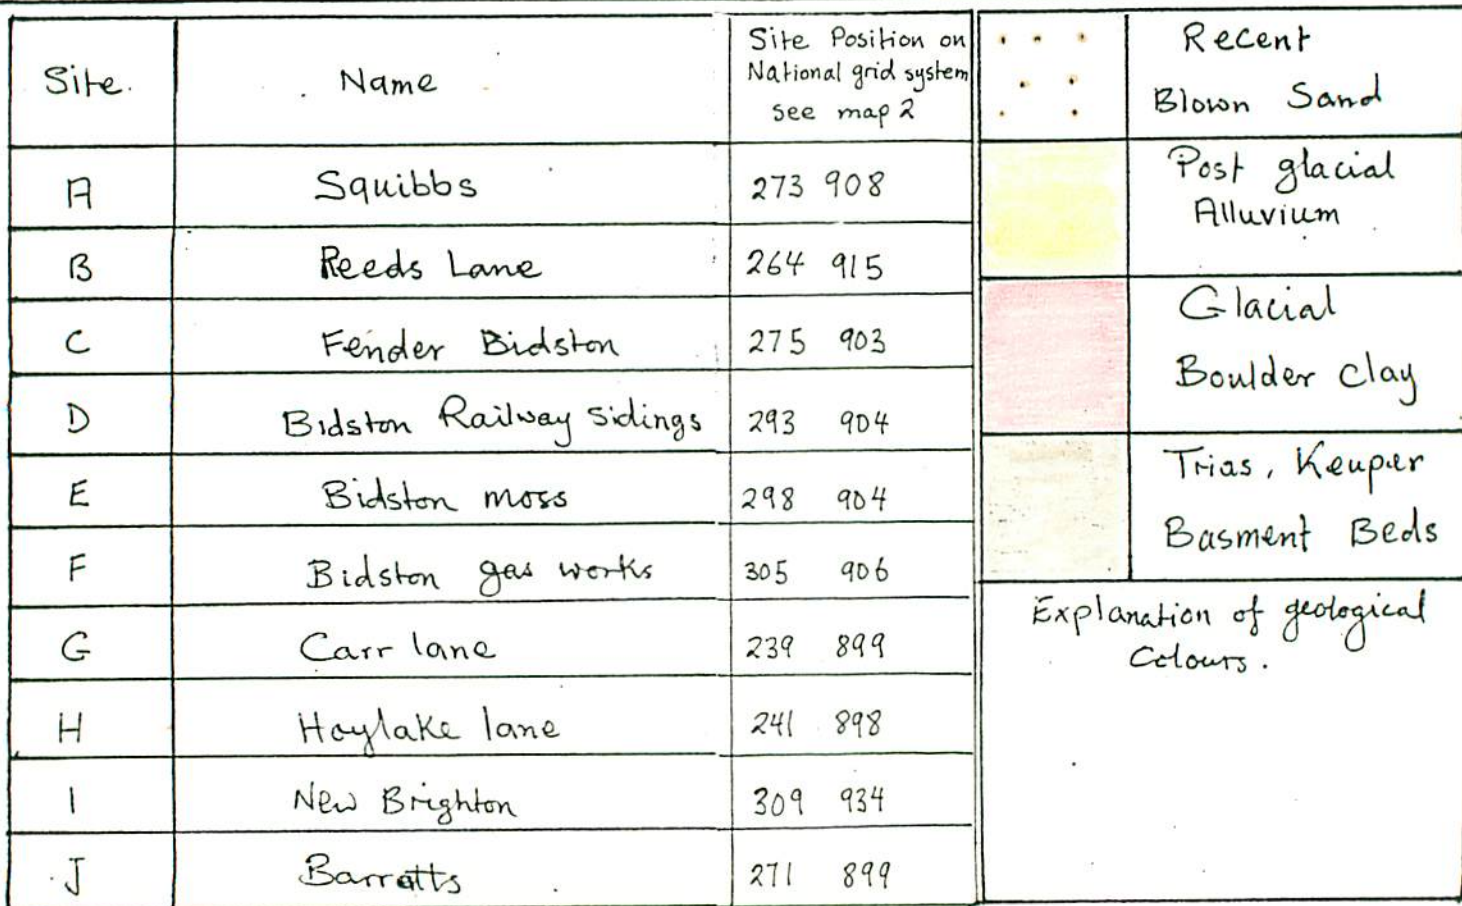 Site. Name Site Position on
National grid system
see map 2
A Squibbs 273 908
B Reeds Lane 264 915
C Fender Bidston 275 903
D Bidston Railway Sidings 293 904
E Bidston moss 298 904
F Bidston gas works 305 906
G Carr lane 239 899
H Hoylake lane 241 898
I New Brighton 309 934
J Barratts 271 899
Recent
Blown Sand
Post glacial
Alluvium
Glacial
Boulder Clay
Trias, Keuper
Basment Beds
Explanation of geological
Colours.